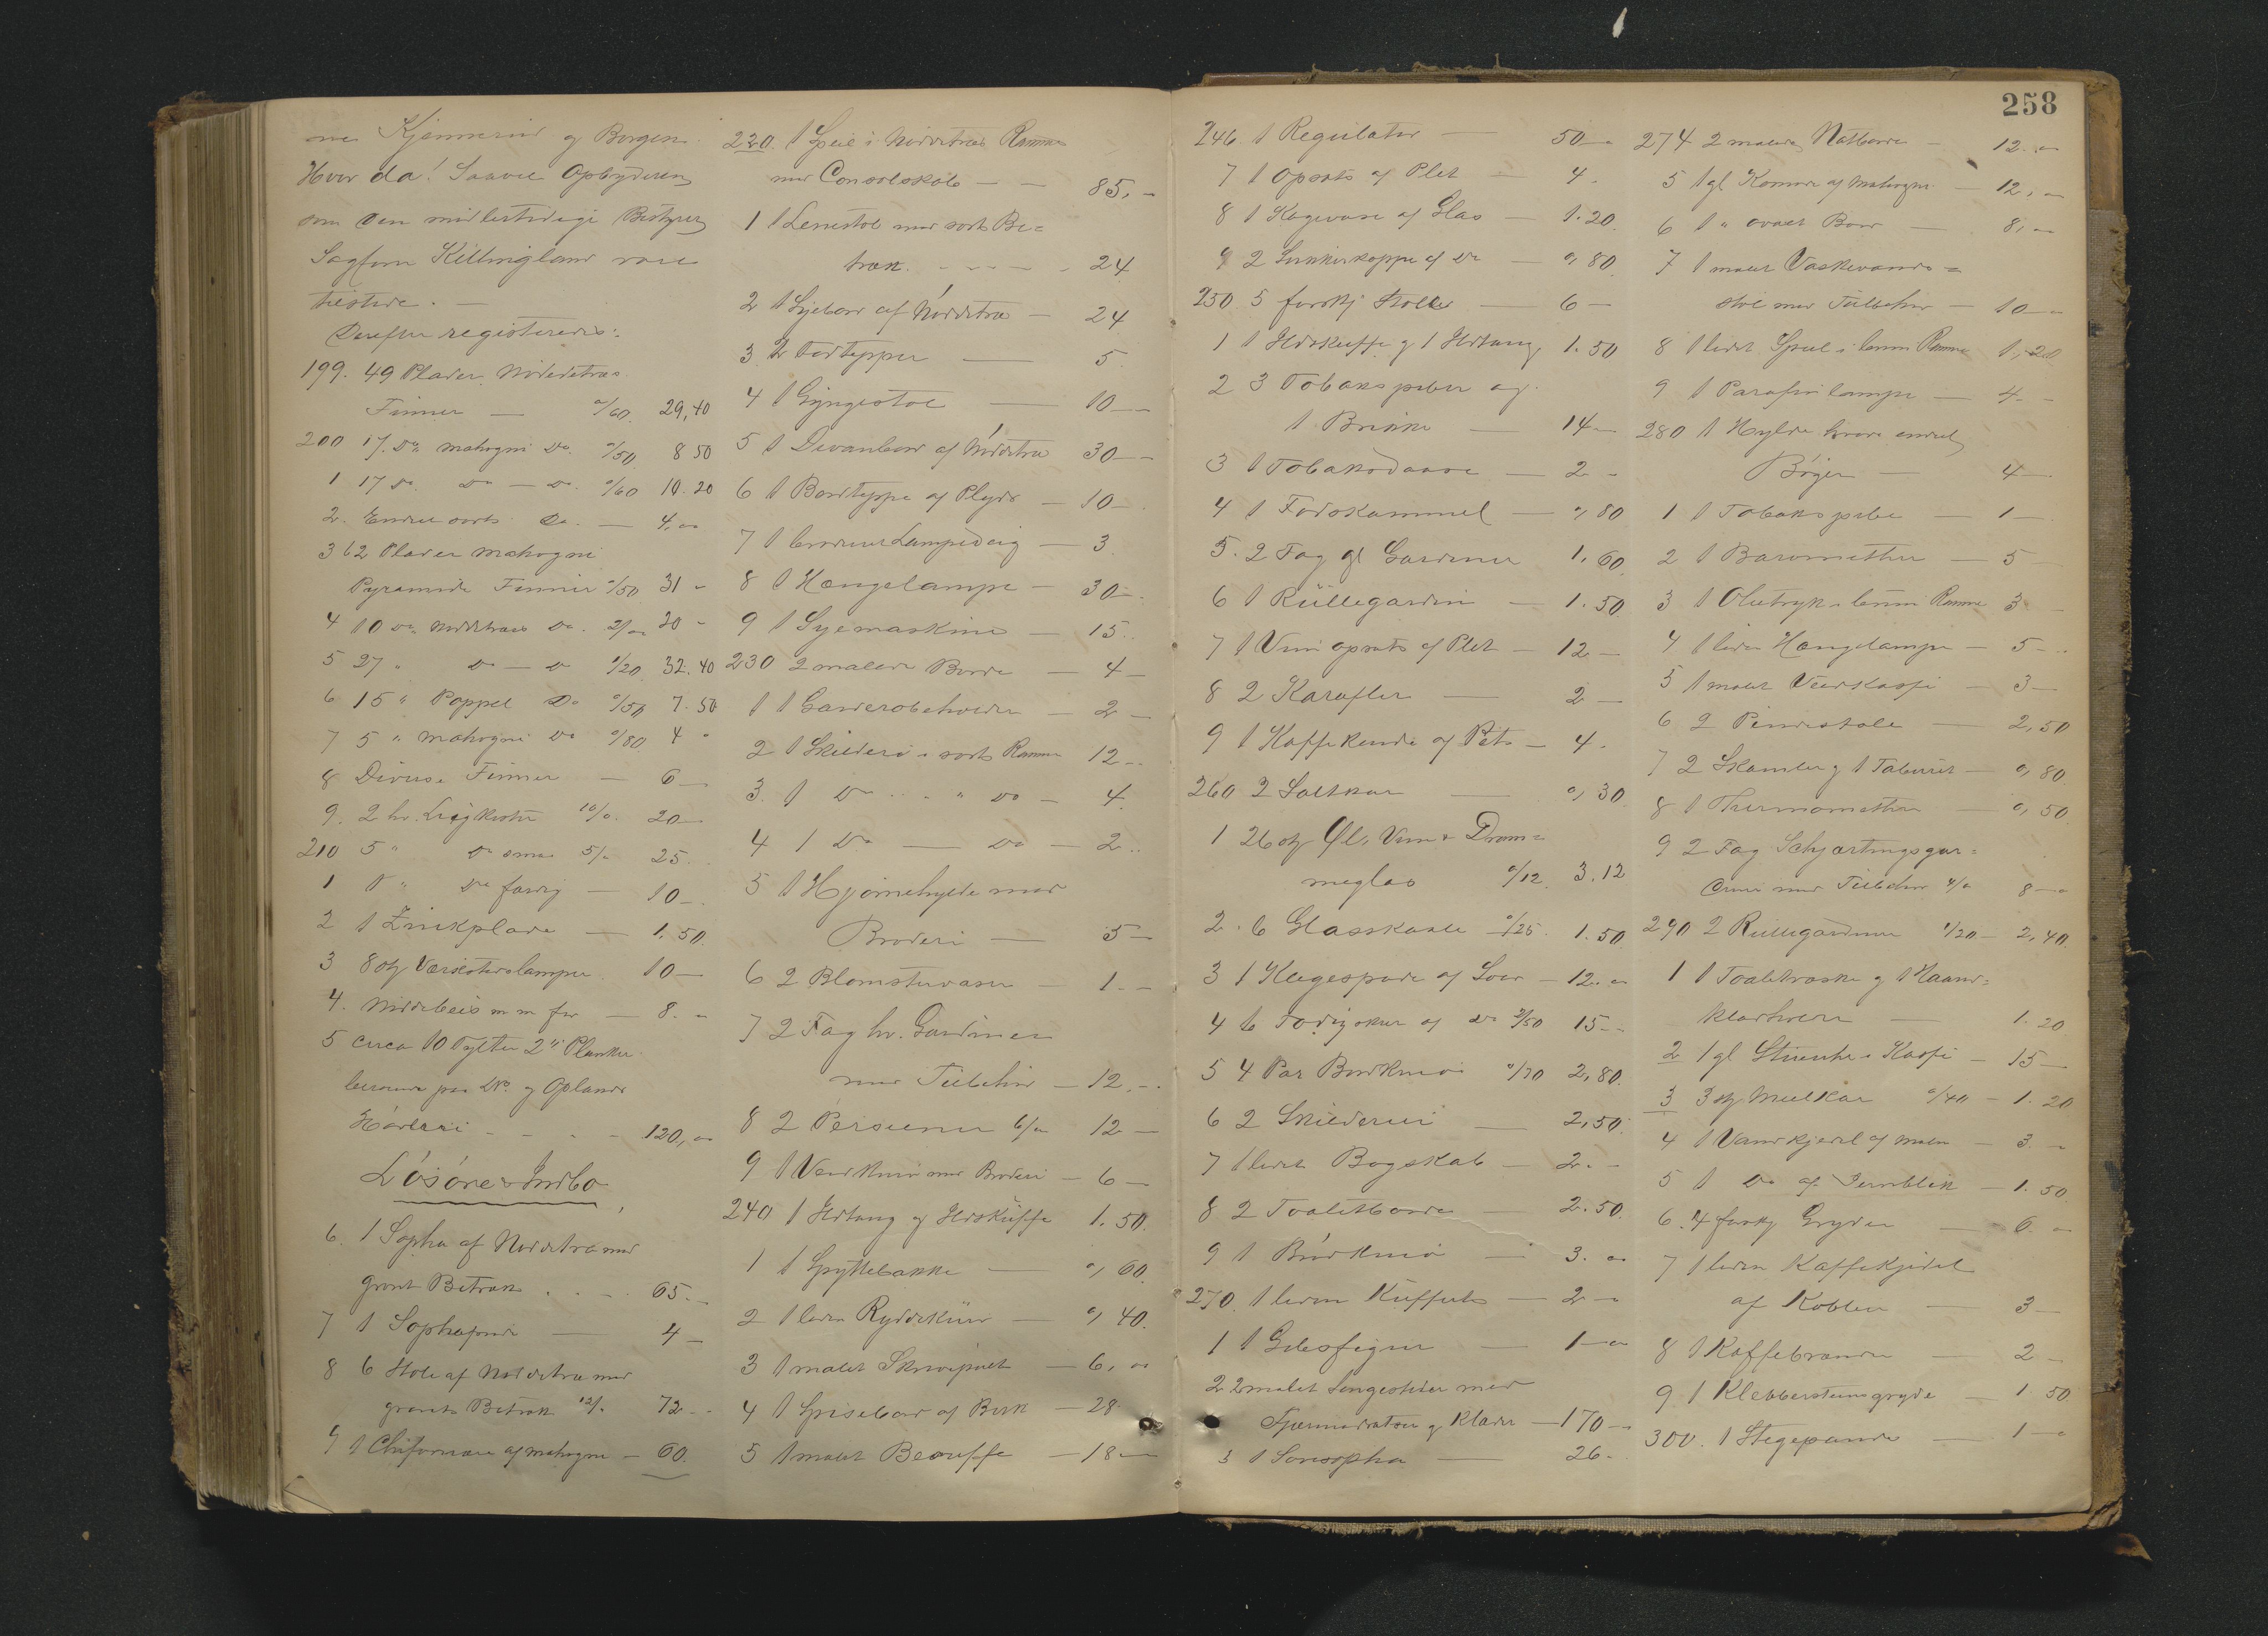 Kjønnerud og Borgen.
Hvor da! Saavel Opbyderen
som den midlertidige Bestyrer
Sagfører Killingland vare
tilstede. —
Derefter registreredes:
199. 49 Plader Nøddetræs
Finner — a/60. 29,40
200 17. Do mahogni Do. a/50 8 50
1 17 Do. Do — Do. a/60 10.20
2. Endeel sorte Do. — 4,00
3 62 Plader mahogni
Pyramide Finner a/50 31 -
4 10 Do. Nøddetræs Do. 2/00 20 -
5 27 " Do — Do 1/20 32.40
6 15 " Poppel Do a/50 7.50
7 5 " mahogni Do a/80 4 "
8 Diverse Finner — 6 —
9. 2 hv. Ligkister 10/. 20 —
210 5 " Do smaa 5/. 25.
1 1 " Do færdig — 10 —
2 1 Zinkplade — 1.50.
3 8 stk Værkstedslamper 10 —
4. Nøddebeis m m for — 8. -
5 circa 10 Tylter 2" Planker
beroende paa No. og Oplands
Høvleri - - - - 120,00
Løsøre & Indbo
6. 1 Sopha af Nøddetræ med
grønt Betræk . . - 65 —
7 1 Sophapude — 4 —
8 6 Stole af Nøddetræ med
grønt Betræk 12/. 72 - -
9 1 Chifoniere af mahogni — 60.
220. 1 Speil i Nøddetræs Ramme
med Consolskab — — 85, -
1 1 Lenestol med sort Be=
træk. - - - - - 24
2 1 Syebord af Nøddetræ — 24
3 2 Fodtepper — 5.
4 1 Gyngestol — 10 —
5 1 Divanbord af Nøddetræ 30 —
6 1 Bordteppe af Plyds — 10 —
7 1 broderet Lampedug — 3.
8 1 Hængelampe — 30 —
9 1 Syemaskine — 15.
230 2 malede Borde — 4 —
1 1 Garderobeholder — 2 —
2 1 Skilderi i sort Ramme 12 —
3. 1 Do - - " Do — 4.
4 1 Do — Do — 2 ..
5 1 Hjørnehylde med
Broderi — 5 —
6 2 Blomstervaser — 1. -
7 2 Fag hv. Gardiner
med Tilbehør — 12. -
8 2 Persienner 6/00 12 —
9 1 Vedkurv med Broderi — 6 —
240 1 Ildtang og Ildskuffe 1.50.
1 1 Spyttebakke — a, 60.
2 1 liden Ryddekurv — a, 40.
3 1 malet Skrivepult — 6,00
4 1 Spisebord af Birk — 28
5 1 malet Beauffe — 18 —
246. 1 Regulator — 50 —
7 1 Opsats af Plet — 4.
8 1 Kagevase af Glas — 1.20.
9 2 Do — a, 80.
250. 5 forskj Stoler — 6 —
1 1 Ildskuffe og 1 Ildtang 1.50
2 3 Tobakspiber og
1 Brikke — 14 —
3 1 Tobaksdaase — 2 -
4 1 Fodskammel — a, 80
5. 2 Fag gl Gardiner 1,60.
6 1 Rullegardin — 1.50.
7 1 Vinopsats af Plet — 12 —
8 2 Karafler — 2 —
9 1 Kaffekande af Plet — 4.
260 2 Saltkar — a, 30.
1 26 stk Øl, Vin & Dram=
meglas a/12. 3.12
2. 6 Glasskaale a/25. 1.50
3 1 Kagespade af Sølv — 12.00
4 6 Do 2/50 15 - -
5 4 Par Bordknive a/70 2,80.
6 2 Skilderier — 2,50.
7 1 lidet Bogskab — 2. -
8 2 Toaletborde — 2.50.
9 1 — 3.00
270. 1 liden Kuffert — 2 -
1 1 Gibsfigur — 1 —
2 2 malet Sengesteder med
Fjærmadratser og Klæder — 170 —
3 1 Sovesopha — 26 -
258
274 2 malede Natborde — 12. -
5 1 gl Komode af Mahogni — 12,00
6 1 " ovalt Bord — 8,00
7 1 malet Vaskevands=
stol med Tilbehør — 10 —
8 1 lidet Speil i brun Ramme 1,20
9 1 Parafinlampe — 4 -
280 1 Hylde hvori endeel
Bøger — 4 —
1 1 Tobakspibe — 1 —
2 1 Baromether — 5
3 1 Olietryk i brun Ramme 3.
4 1 liden Hængelampe — 5 -
5 1 malet Vedkasse — 3 —
6 2 Pindestole — 2,50
7 2 Skamler og 1 Taburet — a, 80.
8 1 Thermomether — a, 50
9 2 Fag Schjærtingsgar=
diner med Tilbehør 4/00 8 —
290 2 Rullegardiner 1/20 — 2,40.
1 1 Toaletvaske og 1 Haand=
klædholder — 1.20
2 1 gl Kasse — 15 —
3 3 stk Melkkar a/40 — 1.20
4 1 Vandkjedel af malm — 3. -
5 1 Do af Jernblik — 1.50.
6. 4 forskj Gryder — 6. -
7 1 liden Kaffekjedel
af Kobber — 3 —
8 1 Kaffebrænder — 2 —
9 1 Klebberstensgryde — 1 50.
300. 1 Stegepande — 1 —